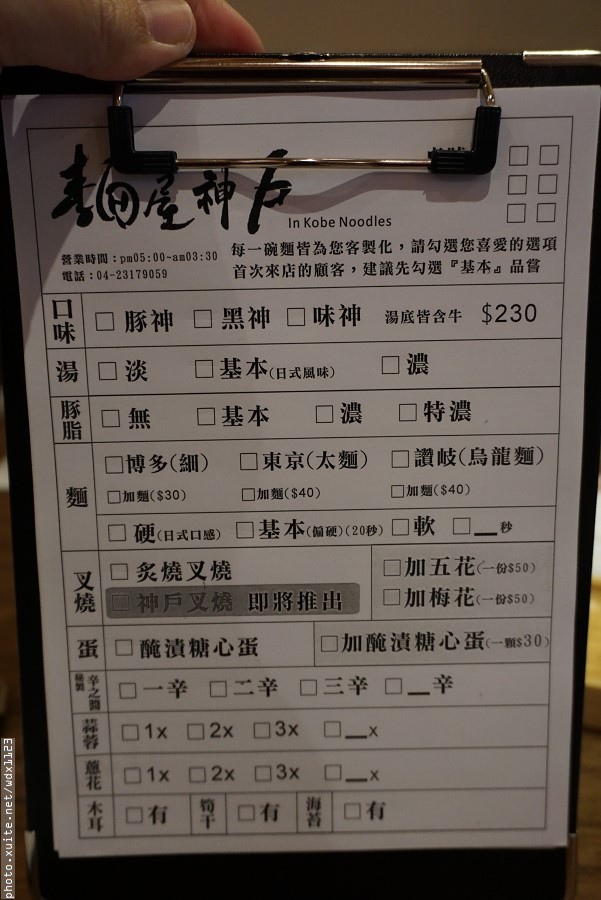 麵屋神戶
In Kobe Noodles
營業時間：pm05:00~am03:30
電話：04-23179059
每一碗麵皆為您客製化，請勾選您喜愛的選項
首次來店的顧客，建議先勾選『基本』品嘗
口味 □豚神 □黑神 □味神 湯底皆含牛 $230
湯 □淡 □基本(日式風味) □濃
豚脂 □無 □基本 □濃 □特濃
麵 □博多(細) □東京(太麵) □讚岐(烏龍麵)
□加麵($30) □加麵($40) □加麵($40)
□硬(日式口感) □基本(偏硬)(20秒) □軟 □__秒
叉燒 □炙燒叉燒 □加五花(一份$50)
□神戶叉燒 即將推出 □加梅花(一份$50)
蛋 □醃漬糖心蛋 □加醃漬糖心蛋(一顆$30)
辛之醬 □一辛 □二辛 □三辛 □__辛
蒜蓉 □1x □2x □3x □__x
蔥花 □1x □2x □3x □__x
木耳 □有 筍干 □有 海苔 □有
photo.xuite.net/wdx1123